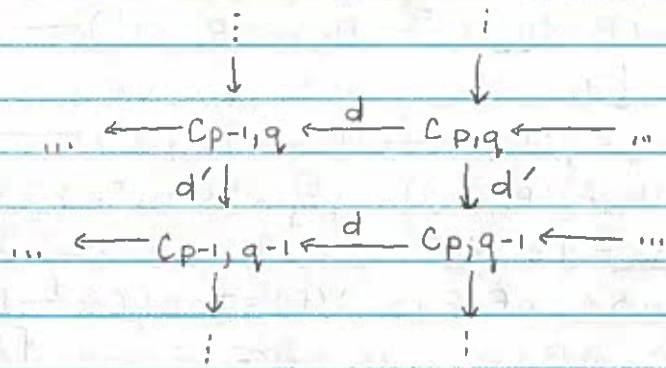 ⋮ ⋮
↓ ↓
... ← C_{p-1,q} ←d C_{p,q} ← ...
d' ↓ ↓ d'
... ← C_{p-1,q-1} ←d C_{p,q-1} ← ...
↓ ↓
⋮ ⋮